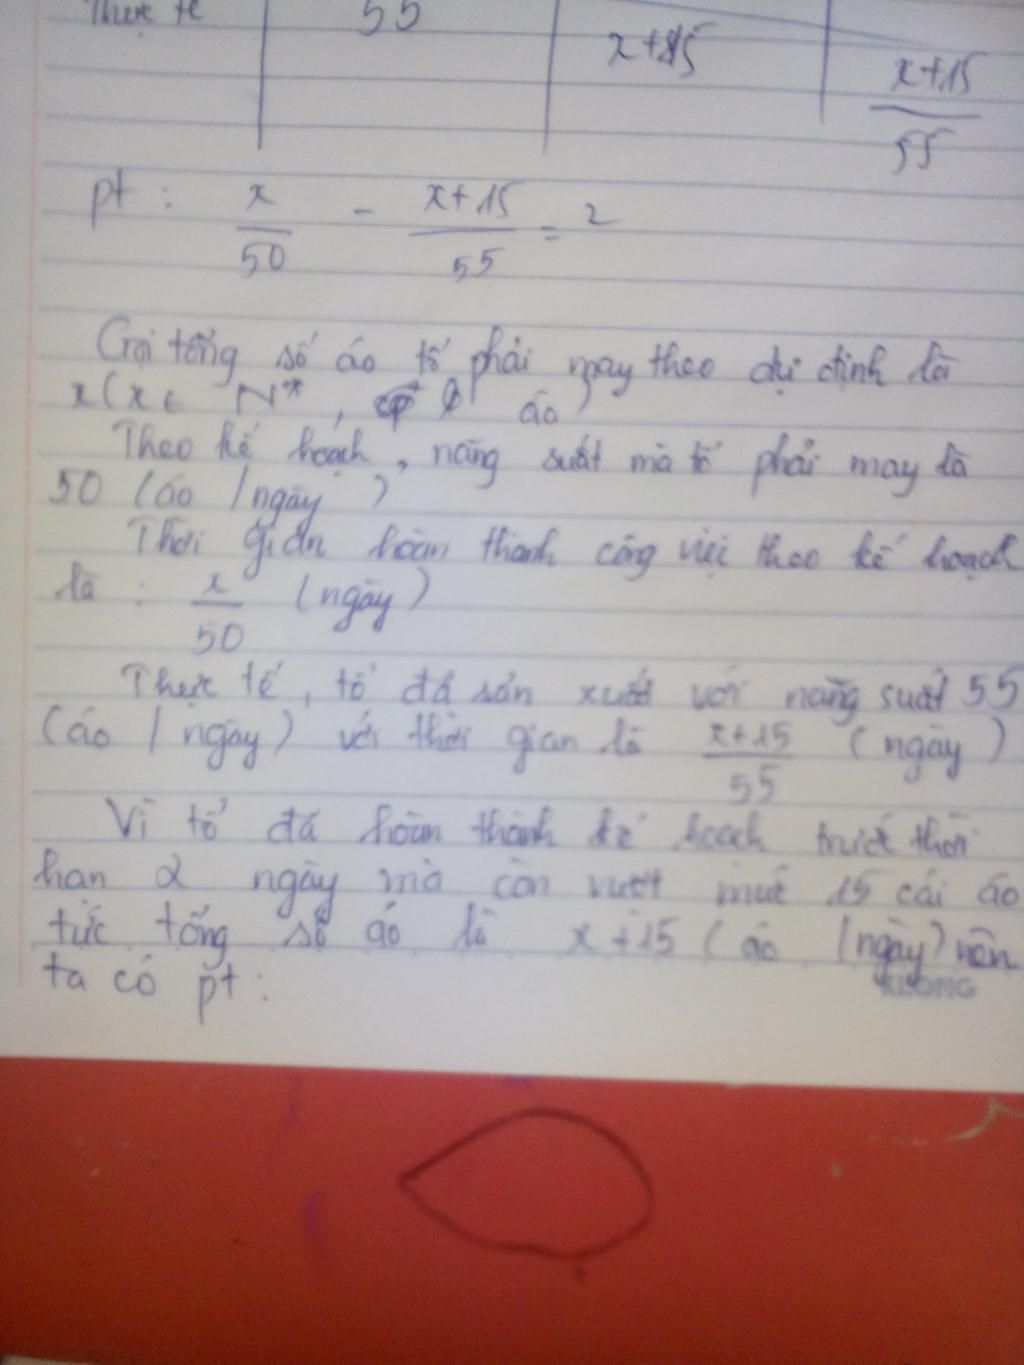 Thực tế 55 x+15 x+15
55
pt : x/50 - x+15/55 = 2
Gọi tổng số áo tổ phải may theo dự định là
x (x ∈ N*, áo)
Theo kế hoạch, năng suất mà tổ phải may là
50 (áo / ngày)
Thời gian hoàn thành công việc theo kế hoạch
là : x/50 (ngày)
Thực tế, tổ đã sản xuất với năng suất 55
(áo / ngày) với thời gian là x+15/55 (ngày)
Vì tổ đã hoàn thành kế hoạch trước thời
hạn 2 ngày mà còn vượt mức 15 cái áo
tức tổng số áo là x+15 (áo / ngày) nên
ta có pt :